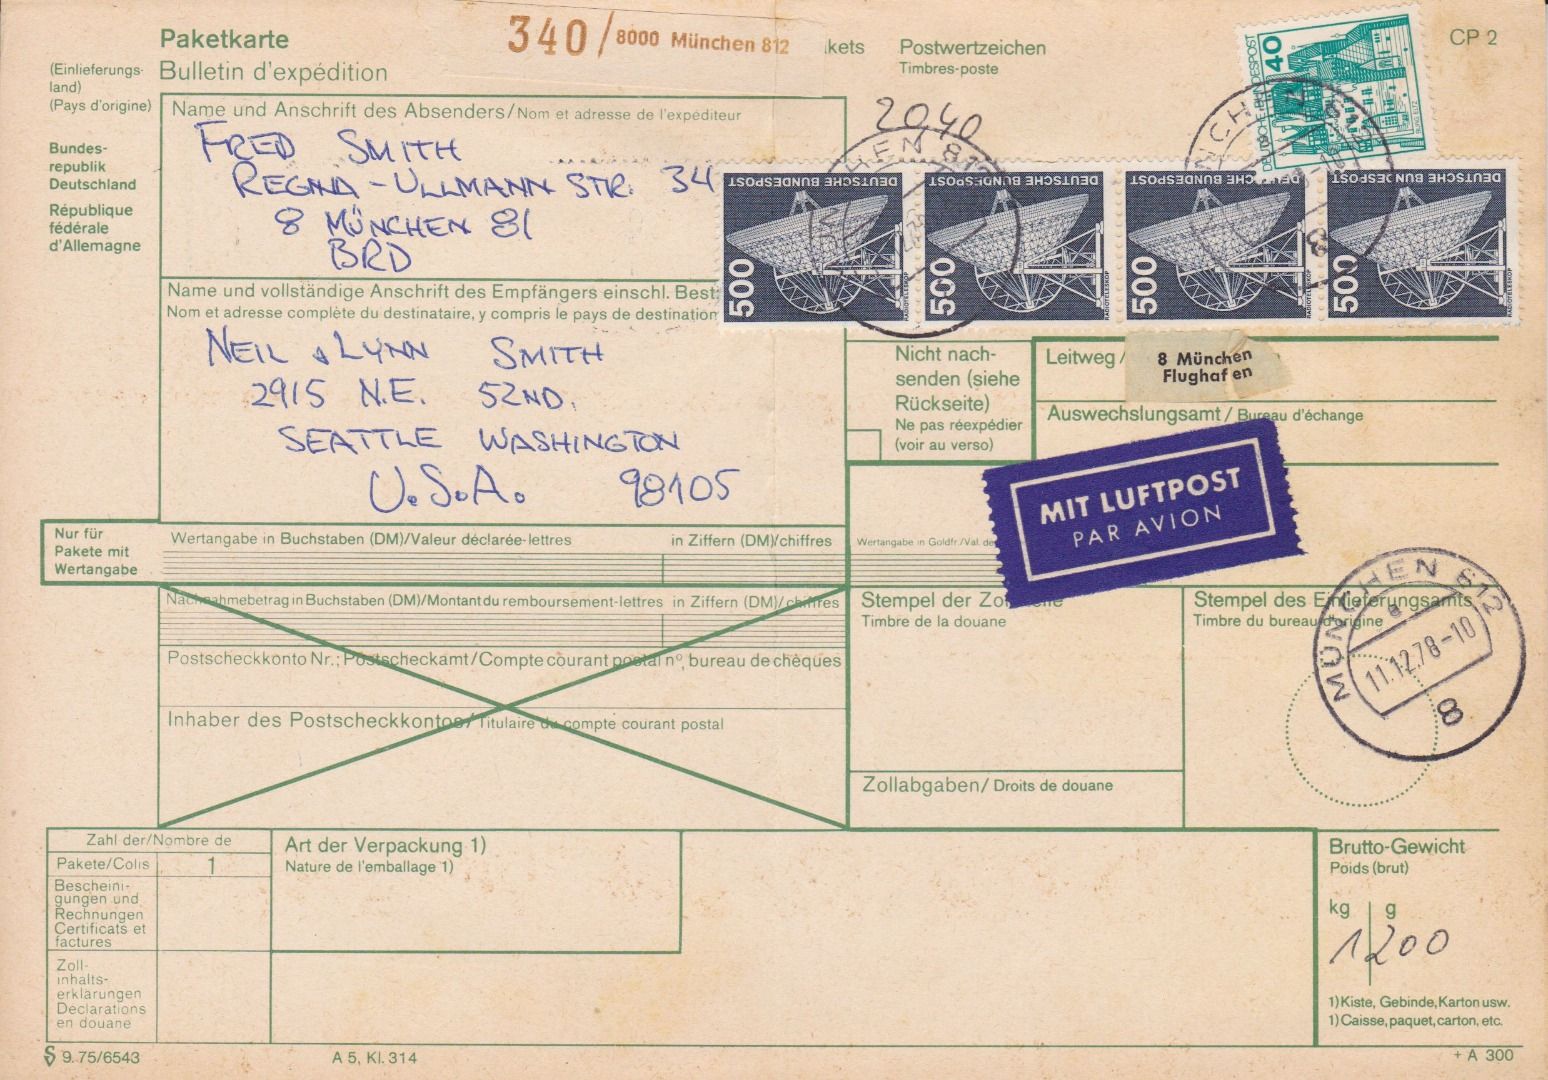 340/8000 München 812
Paketkarte
Bulletin d'expédition
kets
Postwertzeichen
Timbres-poste
CP 2
(Einlieferungs-
land)
(Pays d'origine)
Bundes-
republik
Deutschland
République
fédérale
d'Allemagne
Name und Anschrift des Absenders/Nom et adresse de l'expéditeur
FRED SMITH
REGINA-ULLMANN STR. 34
8 MÜNCHEN 81
BRD
2040
DEUTSCHE BUNDESPOST
40
DEUTSCHE BUNDESPOST
500
RADIOTELESKOP
DEUTSCHE BUNDESPOST
500
RADIOTELESKOP
DEUTSCHE BUNDESPOST
500
DEUTSCHE BUNDESPOST
500
RADIOTELESKOP
Name und vollständige Anschrift des Empfängers einschl. Best
Nom et adresse complète du destinataire, y compris le pays de destination
NEIL & LYNN SMITH
2915 N.E. 52ND.
SEATTLE WASHINGTON
U.S.A. 98105
Nicht nach-
senden (siehe
Rückseite)
Ne pas réexpédier
(voir au verso)
Leitweg/
8 München
Flughafen
Auswechslungsamt/Bureau d'échange
MIT LUFTPOST
PAR AVION
Nur für
Pakete mit
Wertangabe
Wertangabe in Buchstaben (DM)/Valeur déclarée-lettres
in Ziffern (DM)/chiffres
Wertangabe in Goldfr./Val. de
Nachnahmebetrag in Buchstaben (DM)/Montant du remboursement-lettres
in Ziffern (DM)/chiffres
Postscheckkonto Nr.; Postscheckamt/Compte courant postal n°, bureau de chèques
Inhaber des Postscheckkontos/Titulaire du compte courant postal
Stempel der Zollstelle
Timbre de la douane
Zollabgaben/Droits de douane
Stempel des Einlieferungsamts
Timbre du bureau d'origine
MÜNCHEN 812
a
11.12.78-10
8
Zahl der/Nombre de
Pakete/Colis
1
Bescheini-
gungen und
Rechnungen
Certificats et
factures
Zoll-
inhalts-
erklärungen
Déclarations
en douane
Art der Verpackung 1)
Nature de l'emballage 1)
Brutto-Gewicht
Poids (brut)
kg g
1200
1) Kiste, Gebinde, Karton usw.
1) Caisse, paquet, carton, etc.
9.75/6543
A 5, Kl. 314
+ A 300